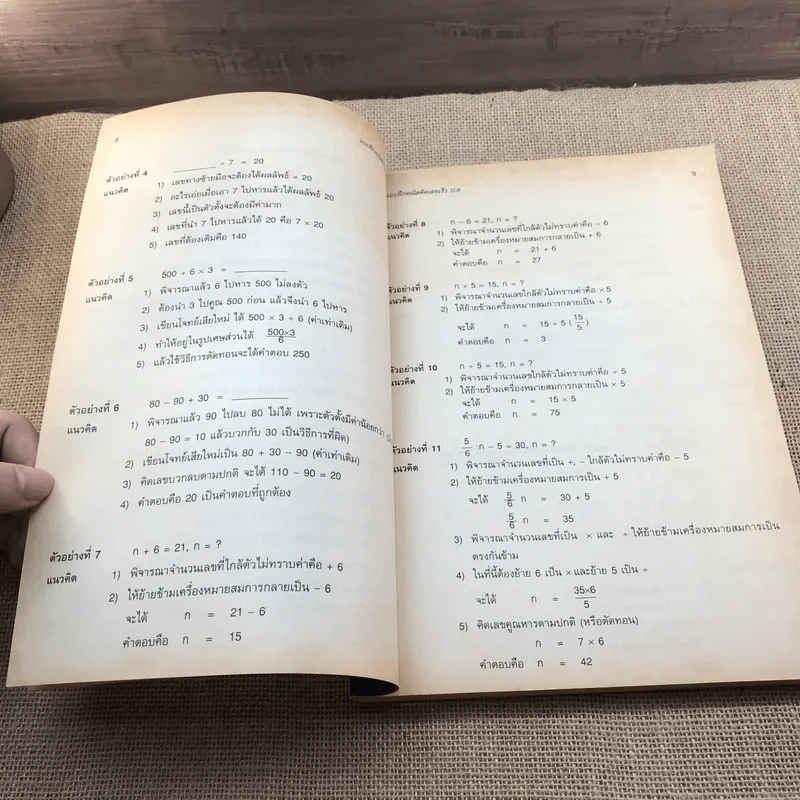 8
ตัวอย่างที่ 4 ______ ÷ 7 = 20
แนวคิด 1) เลขทางซ้ายมือจะต้องได้ผลลัพธ์ = 20
2) อะไรเอ่ยเมื่อเอา 7 ไปหารแล้วได้ผลลัพธ์ 20
3) เลขนี้เป็นตัวตั้งจะต้องมีค่ามาก
4) เลขที่นำ 7 ไปหารแล้วได้ 20 คือ 7 × 20
5) เลขที่ต้องเติมคือ 140
ตัวอย่างที่ 5 500 ÷ 6 × 3 = ______
แนวคิด 1) พิจารณาแล้ว 6 ไปหาร 500 ไม่ลงตัว
2) ต้องนำ 3 ไปคูณ 500 ก่อน แล้วจึงนำ 6 ไปหาร
3) เขียนโจทย์เสียใหม่ ได้ 500 × 3 ÷ 6 (ค่าเท่าเดิม)
4) ทำให้อยู่ในรูปเศษส่วนได้ 500×3/6
5) แล้วใช้วิธีการตัดทอนจะได้คำตอบ 250
ตัวอย่างที่ 6 80 – 90 + 30 = ______
แนวคิด 1) พิจารณาแล้ว 90 ไปลบ 80 ไม่ได้ เพราะตัวตั้งมีค่าน้อยกว่า
80 – 90 = 10 แล้วบวกกับ 30 เป็นวิธีการที่ผิด)
2) เขียนโจทย์เสียใหม่เป็น 80 + 30 – 90 (ค่าเท่าเดิม)
3) คิดเลขบวกลบตามปกติ จะได้ 110 – 90 = 20
4) คำตอบคือ 20 เป็นคำตอบที่ถูกต้อง
ตัวอย่างที่ 7 n + 6 = 21, n = ?
แนวคิด 1) พิจารณาจำนวนเลขที่ใกล้ตัวไม่ทราบค่าคือ + 6
2) ให้ย้ายข้ามเครื่องหมายสมการกลายเป็น – 6
จะได้ n = 21 – 6
คำตอบคือ n = 15
แบบฝึกคณิตคิดเลขเร็ว ป.6 9
ตัวอย่างที่ 8 n – 6 = 21, n = ?
แนวคิด 1) พิจารณาจำนวนเลขที่ใกล้ตัวไม่ทราบค่าคือ – 6
2) ให้ย้ายข้ามเครื่องหมายสมการกลายเป็น + 6
จะได้ n = 21 + 6
คำตอบคือ n = 27
ตัวอย่างที่ 9 n × 5 = 15, n = ?
แนวคิด 1) พิจารณาจำนวนเลขที่ใกล้ตัวไม่ทราบค่าคือ ×5
2) ให้ย้ายข้ามเครื่องหมายสมการกลายเป็น ÷ 5
จะได้ n = 15 ÷ 5 (15/5)
คำตอบคือ n = 3
ตัวอย่างที่ 10 n ÷ 5 = 15, n = ?
แนวคิด 1) พิจารณาจำนวนเลขใกล้ตัวไม่ทราบค่าคือ ÷ 5
2) ให้ย้ายข้ามเครื่องหมายสมการกลายเป็น × 5
จะได้ n = 15 × 5
คำตอบคือ n = 75
ตัวอย่างที่ 11 5/6 n – 5 = 30, n = ?
แนวคิด 1) พิจารณาจำนวนเลขที่เป็น +, – ใกล้ตัวไม่ทราบค่าคือ – 5
2) ให้ย้ายข้ามเครื่องหมายสมการเป็น + 5
จะได้ 5/6 n = 30 + 5
5/6 n = 35
3) พิจารณาจำนวนเลขที่เป็น × และ ÷ ให้ย้ายข้ามเครื่องหมายสมการเป็น
ตรงกันข้าม
4) ในที่นี้ต้องย้าย 6 เป็น × และย้าย 5 เป็น ÷
จะได้ n = 35×6/5
5) คิดเลขคูณหารตามปกติ (หรือตัดทอน)
n = 7 × 6
คำตอบคือ n = 42